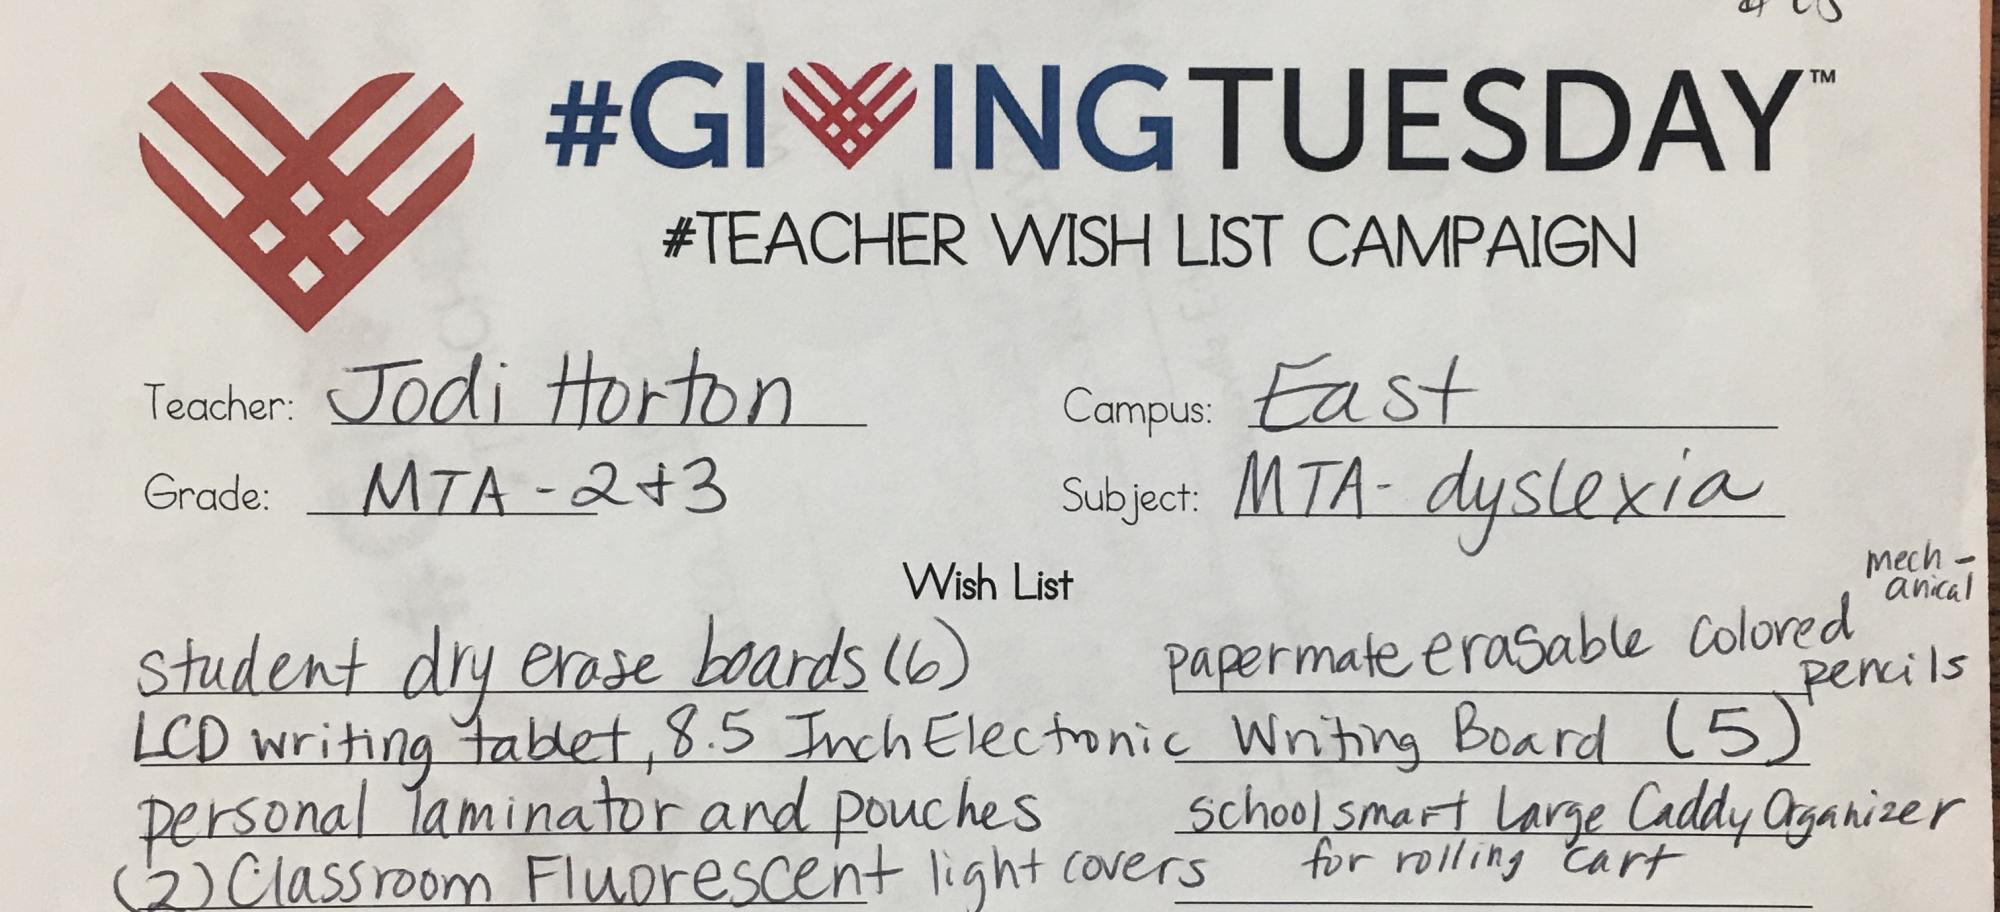 #GIVING TUESDAY™
#TEACHER WISH LIST CAMPAIGN
Teacher: Jodi Horton Campus: East
Grade: MTA - 2+3 Subject: MTA- dyslexia
Wish List
student dry erase boards (6) papermate erasable colored mech-anical pencils
LCD writing tablet, 8.5 Inch Electronic Writing Board (5)
personal laminator and pouches school smart Large Caddy Organizer
(2) Classroom Fluorescent light covers for rolling cart